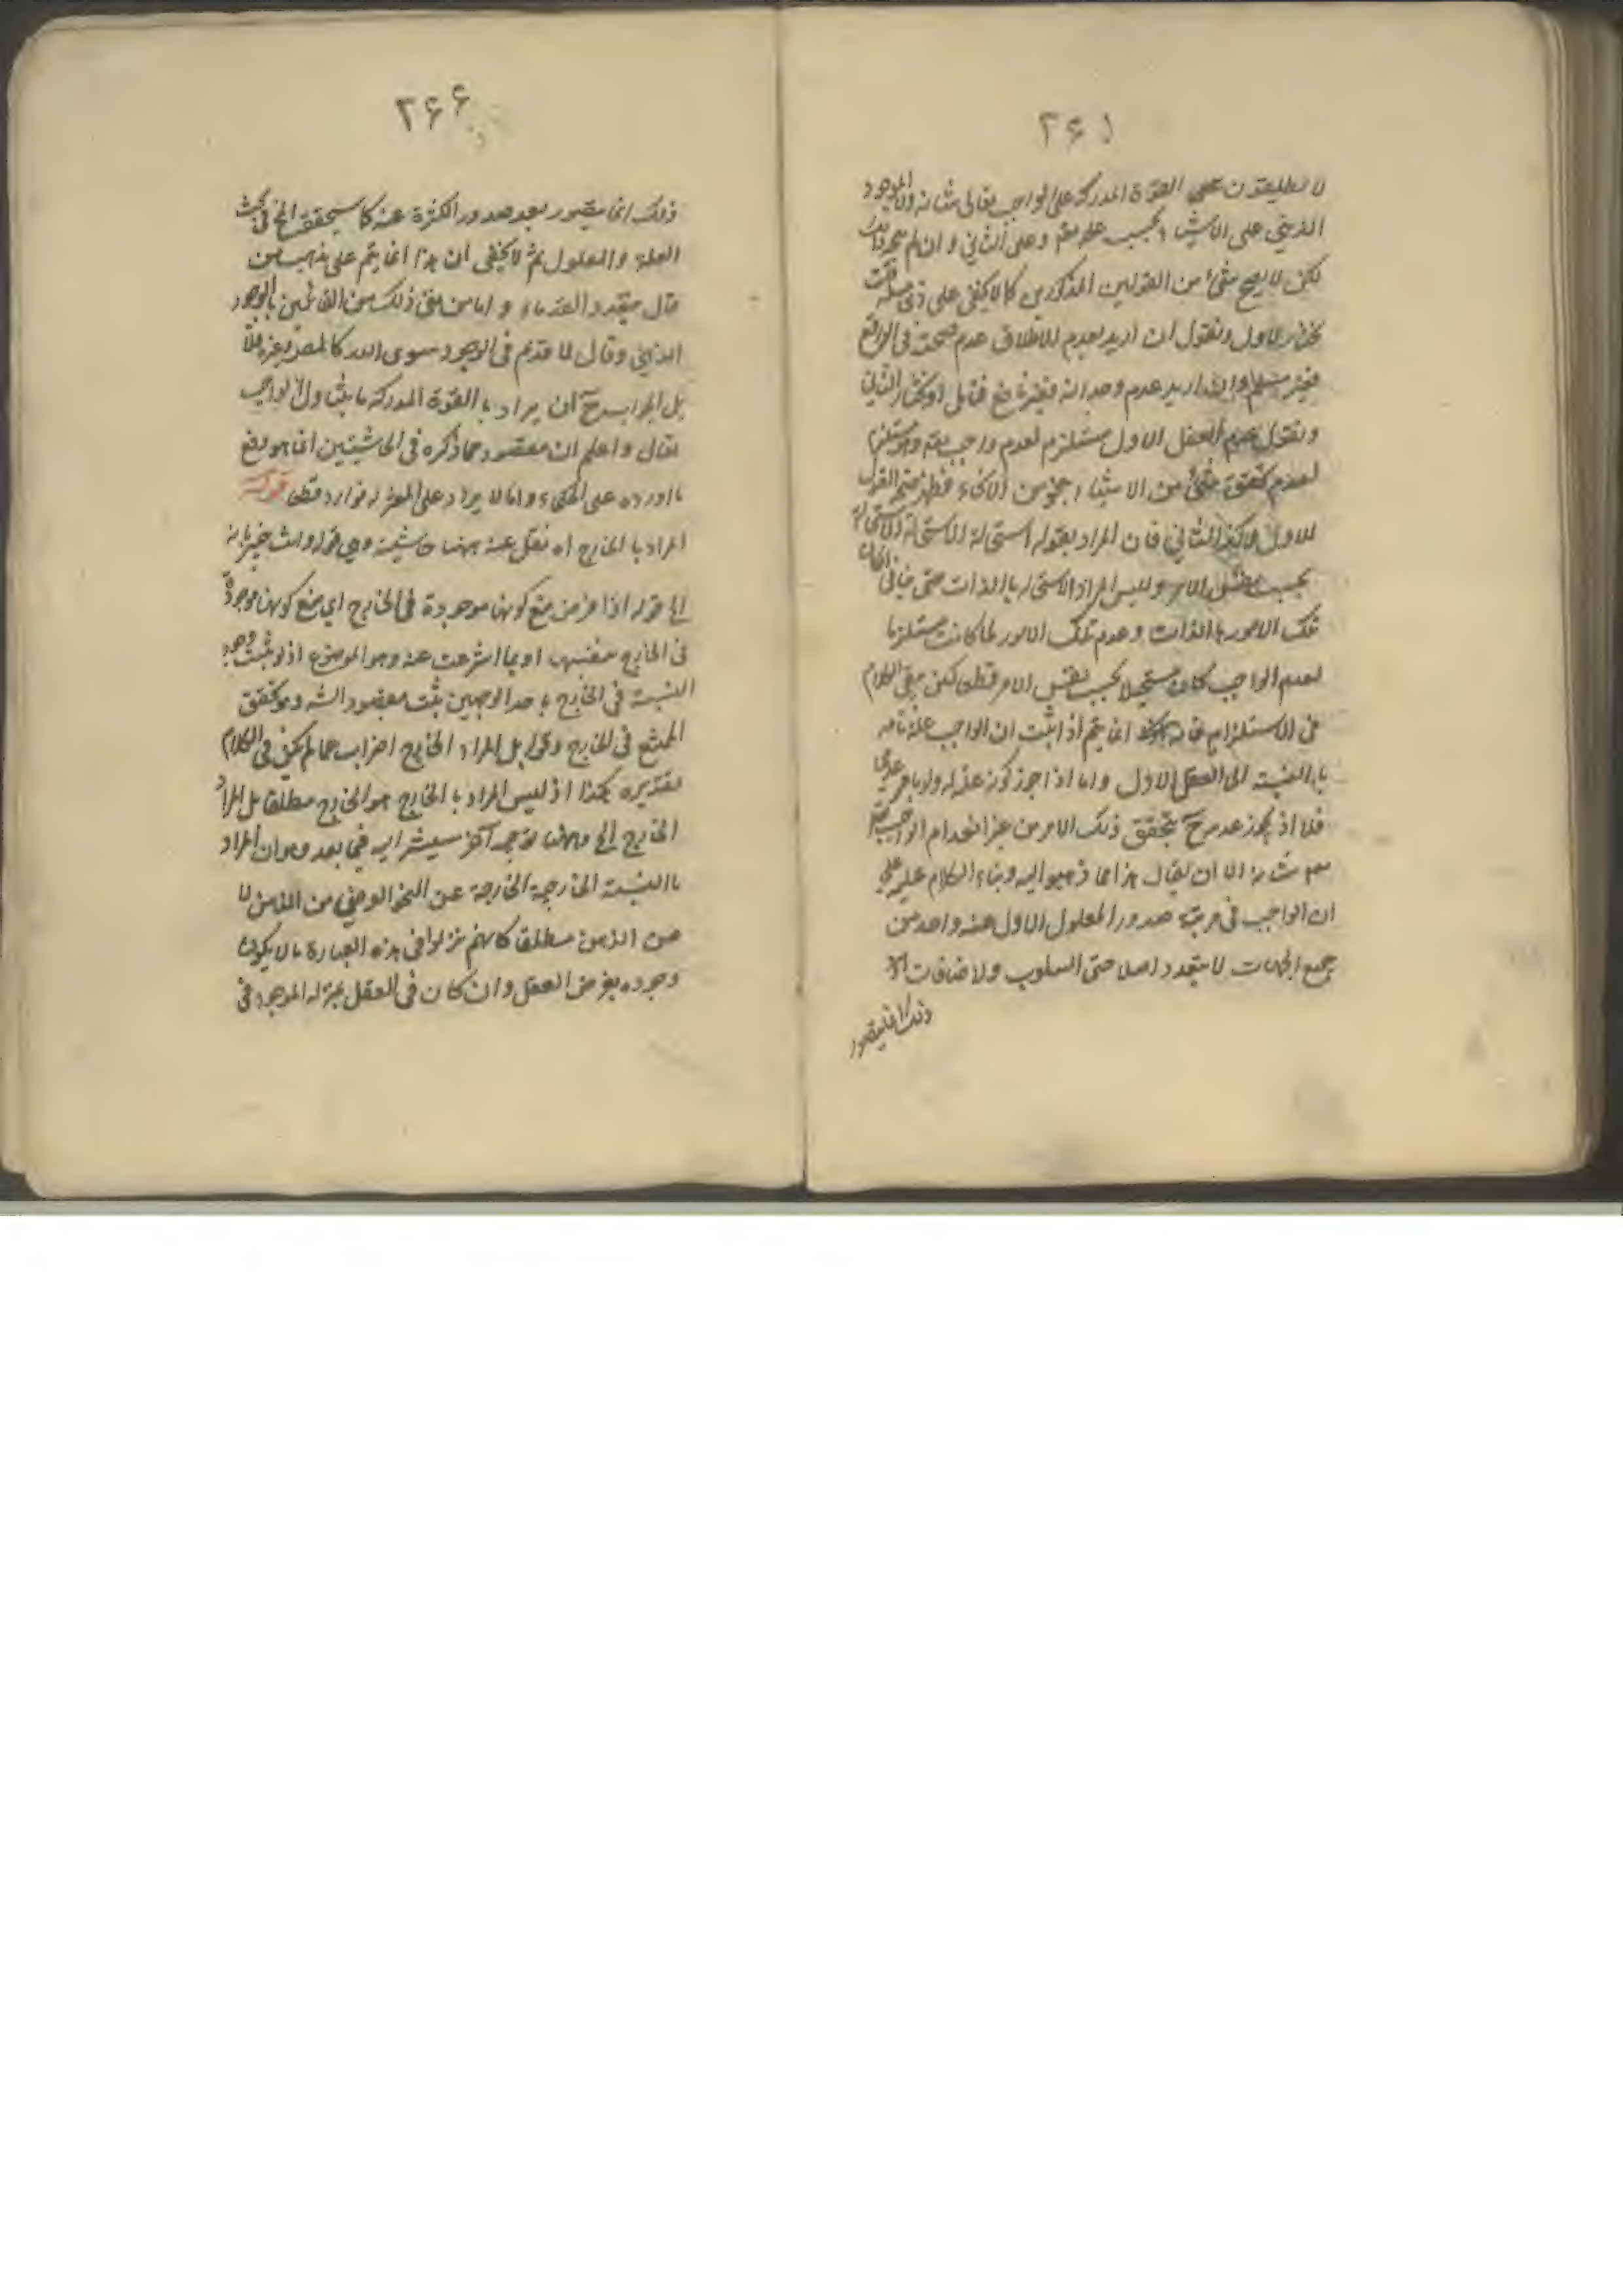 ٢۶١
لا يطلقون على القوة المدركة على الواجب تعالى شانه والموجود
الذهني على الاشياء بحسب علمه وعلى الثاني وان لم
لكن لا يصح شئ من القولين المذكورين كما لا يخفى على ذي
نختار الاول ونقول ان اريد بعدم الاطلاق عدم صحته في الواقع
فغير مسلم وان اريد عدم وجدانه فغير نافع فتأمل او نختار الثاني
ونقول عدم العقل الاول مستلزم لعدم واجب وهو مستلزم
لعدم تحقق شئ من الاشياء بنحو من الانحاء فظهر صحة القول
الاول وكذا الثاني فان المراد بقوله استحالة الاستحالة
بحسب نفس الامر وليس المراد الاستحالة بالذات حتى ينافي امكان
تلك الامور بالذات وعدم تلك الامور لما كانت مستلزما
لعدم الواجب كان مستحيلا بحسب نفس الامر قطعا لكن بقي الكلام
في الاستلزام فانه انما يتم اذا ثبت ان الواجب علة تامة
بالنسبة الى العقل الاول واما اذا جوز كونه علة له ولو بامر عدمي
فلا اذ يجوز عدمه ح بتحقق ذلك الامر من غير انعدام الواجب
شانه الا ان يقال هذا مما ذهبوا اليه وبناء الكلام عليه على
ان الواجب في مرتبة صدور المعلول الاول عنه واحد من
جميع الجهات لا يتعدد اصلا حتى السلوب والاضافات
ذلك انما يتصور
٢۶۶
ذلك انما يتصور بعد صدور الكثرة عنه كما سيحققه المح في بحث
العلة والمعلول ثم لا يخفى ان هذا انما يتم على مذهب من
قال بتعدد القدماء واما من نفى ذلك من القائلين بالوجود
الذهني وقال لا قديم في الوجود سوى الله كالمص وغيره فلا
بل الجواب ح ان يراد بالقوة المدركة ما يتناول الواجب
تعالى واعلم ان مقصوده مما ذكره في الحاشيتين انما هو دفع
ما اورده على الحكماء واما لا يراد على المعتزلة فوارد قطعا قوله
المراد بالخارج اه نقل عنه ههنا حاشية وهي قوله وانت خبير بانه
الى قوله اذا فرض منع كونها موجودة في الخارج اي منع كونها موجودة
في الخارج بنفسها او بما انتزعت عنه وهو الموضوع اذ لو ثبت وجود
النسبة في الخارج باحد الوجهين ثبت مقصود الش وهو تحقق
الممتنع في الخارج وقوله بل المراد الخارج اضراب عما لم يكن في الكلام
تقديره هكذا اذ ليس المراد بالخارج هو الخارج مطلقا بل المراد
الخارج الخ وههنا توجيه آخر سيشير اليه فيما بعد وهو ان المراد
بالنسبة الخارجية الخارجة عن النحو الفرضي من الذهن لا
عن الذهن مطلقا كانهم نزلوا في هذه العبارة ما لا يكون
وجوده بفرض العقل وان كان في العقل بمنزلة الموجود في